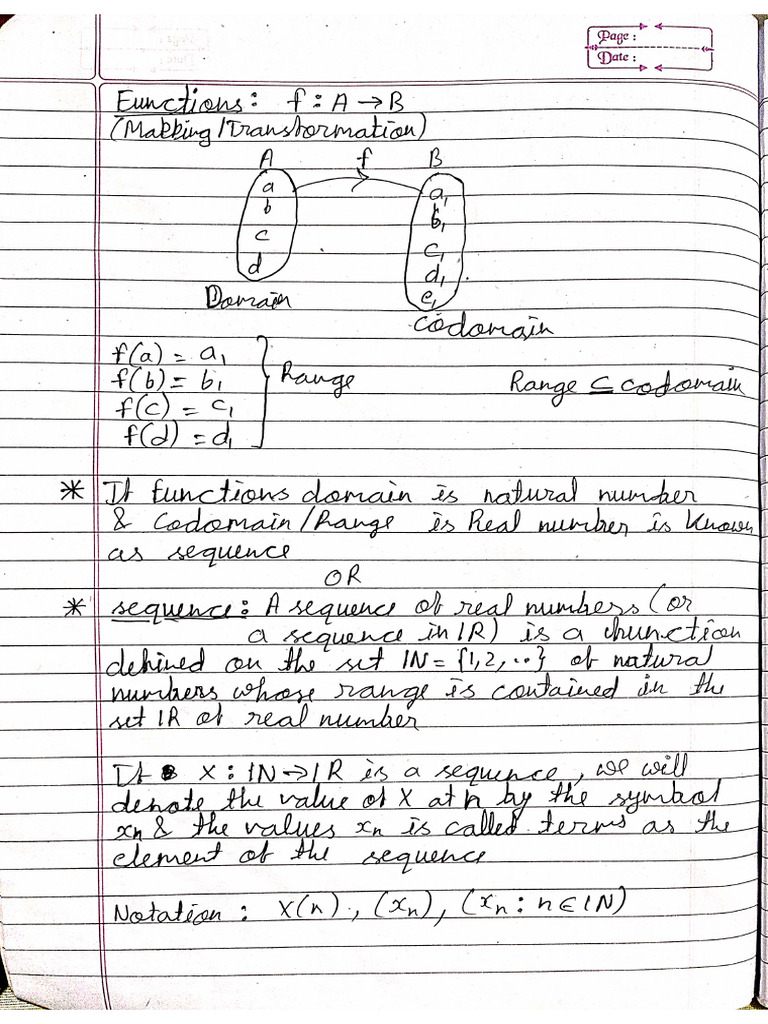 Page :
Date :
Functions: f : A → B
(Mapping/Transformation)
A f B
a a₁
b b₁
c c₁
d d₁
e₁
Domain
Codomain
f(a) = a₁
f(b) = b₁
f(c) = c₁
f(d) = d₁
} Range
Range ⊆ codomain
* If functions domain is natural number
& Codomain/Range is Real number is known
as sequence
OR
* sequence: A sequence of real numbers (or
a sequence in IR) is a function
defined on the set IN = {1,2, ...} of natural
numbers whose range is contained in the
set IR of real number
If X : IN → IR is a sequence, we will
denote the value of X at n by the symbol
xₙ & the values xₙ is called terms as the
element of the sequence
Notation : X(n), (xₙ), (xₙ : n ∈ IN)